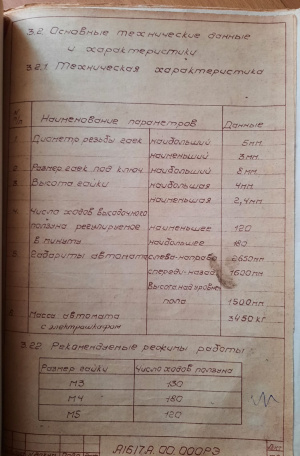 3.2. Основные технические данные
и характеристики
3.2.1 Техническая характеристика
Наименование параметров Данные
1 Диаметр резьбы гаек наибольший 5мм.
наименьший 3мм.
2. Размер гаек под ключ наибольший 8мм.
3 Высота гайки наибольшая 4мм.
наименьшая 2,4мм.
4. Число ходов высадочного
ползуна регулируемое наименьшее 120
в минуту наибольшее 180
5. Габариты автомата слева-направо 2650мм
спереди-назад 1600мм
Высота над уровнем
пола 1500мм
Масса автомата 3450кг.
с электрошкафом
3.2.2 Рекомендуемые режимы работы:
Размер гайки Число ходов ползуна
М3 130
М4 180
М5 120
А1617.А.00.000РЭ